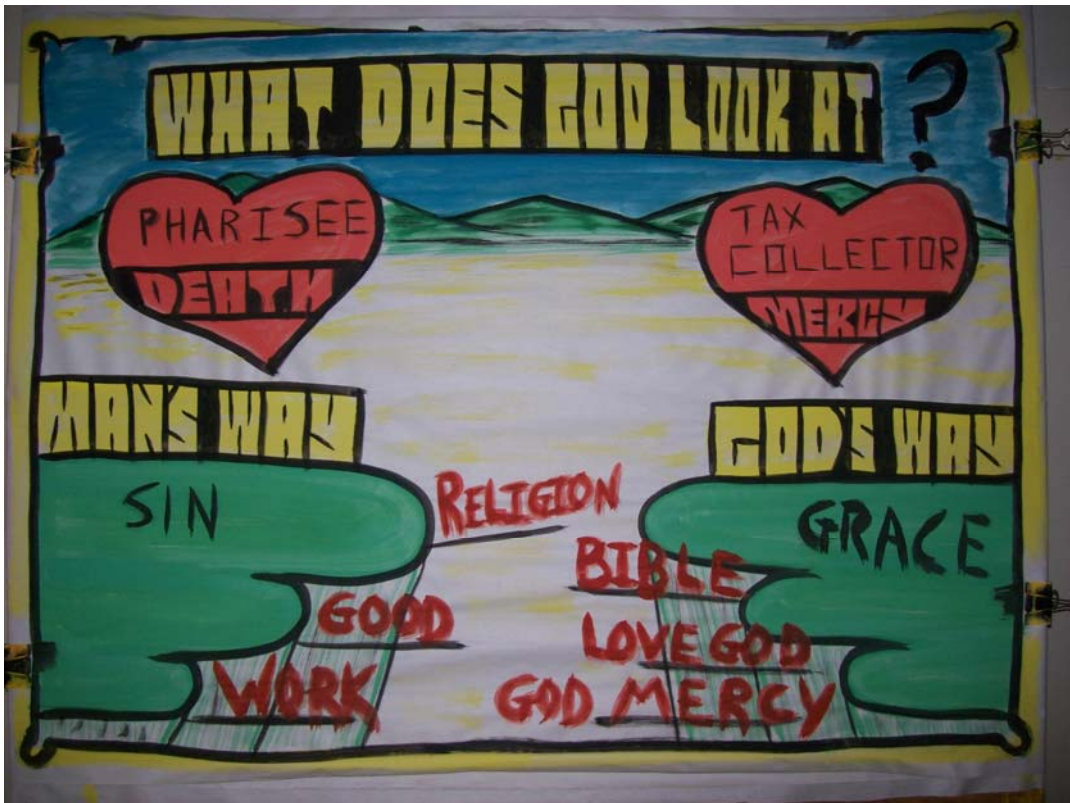 WHAT DOES GOD LOOK AT ?
PHARISEE
DEATH
TAX
COLLECTOR
MERCY
MAN'S WAY
SIN
RELIGION
GOOD
WORK
GOD'S WAY
GRACE
BIBLE
LOVE GOD
GOD MERCY